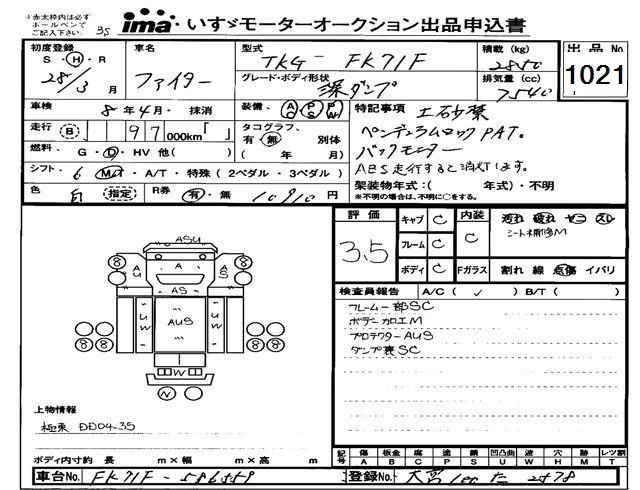 ※赤太枠内は必ず
ボールペンで
ご記入下さい
35
ima いすゞモーターオークション出品申込書
初度登録
S・H・R
28/3月
車名
ファイター
型式
TKG- FK71F
グレード・ボディ形状
深ダンプ
積載 (kg)
2850
排気量 (cc)
7540
出品 No
1021
車検 8年4月・抹消
走行 B 97 000km「 」
燃料、 G・D・HV 他( )
装備、 AC PS PW
タコグラフ、
有・無 別体
( 年 月)
特記事項 土砂禁
ペンデュラムロックPAT。
バックモニター
ABS走行すると消灯します。
架装物年式:( 年式)・不明
※不明の場合は、不明に○をする。
シフト 6 M/T・A/T・特殊 (2ペダル・3ペダル)
色 白 指定 R券 有・無 10910 円
評価
3.5
キャブ C
フレーム C
ボディ C
内装
C
Fガラス
汚れ 破れ ヤニ スレ
シート補修M
割れ 線 点傷 イバリ
検査員報告 A/C( ✓ ) B/T( )
フレーム一部SC
ボデー加工M
プロテクターAUS
ダンプ裏SC
ASU
8 8
AU A AS
8 8
AS
UW AUS UW
8 8 8 8
W
N
上物情報
極東 DD04-35
ボディ内寸約 長 m× 幅 m× 高 m
記号 傷 A 板金 B 腐 C 塗 P 錆 S 凹凸曲 U 波 W 穴 H 跡 M レツ割 T
車台No. FK71F-586559
登録No. 大宮100た2578